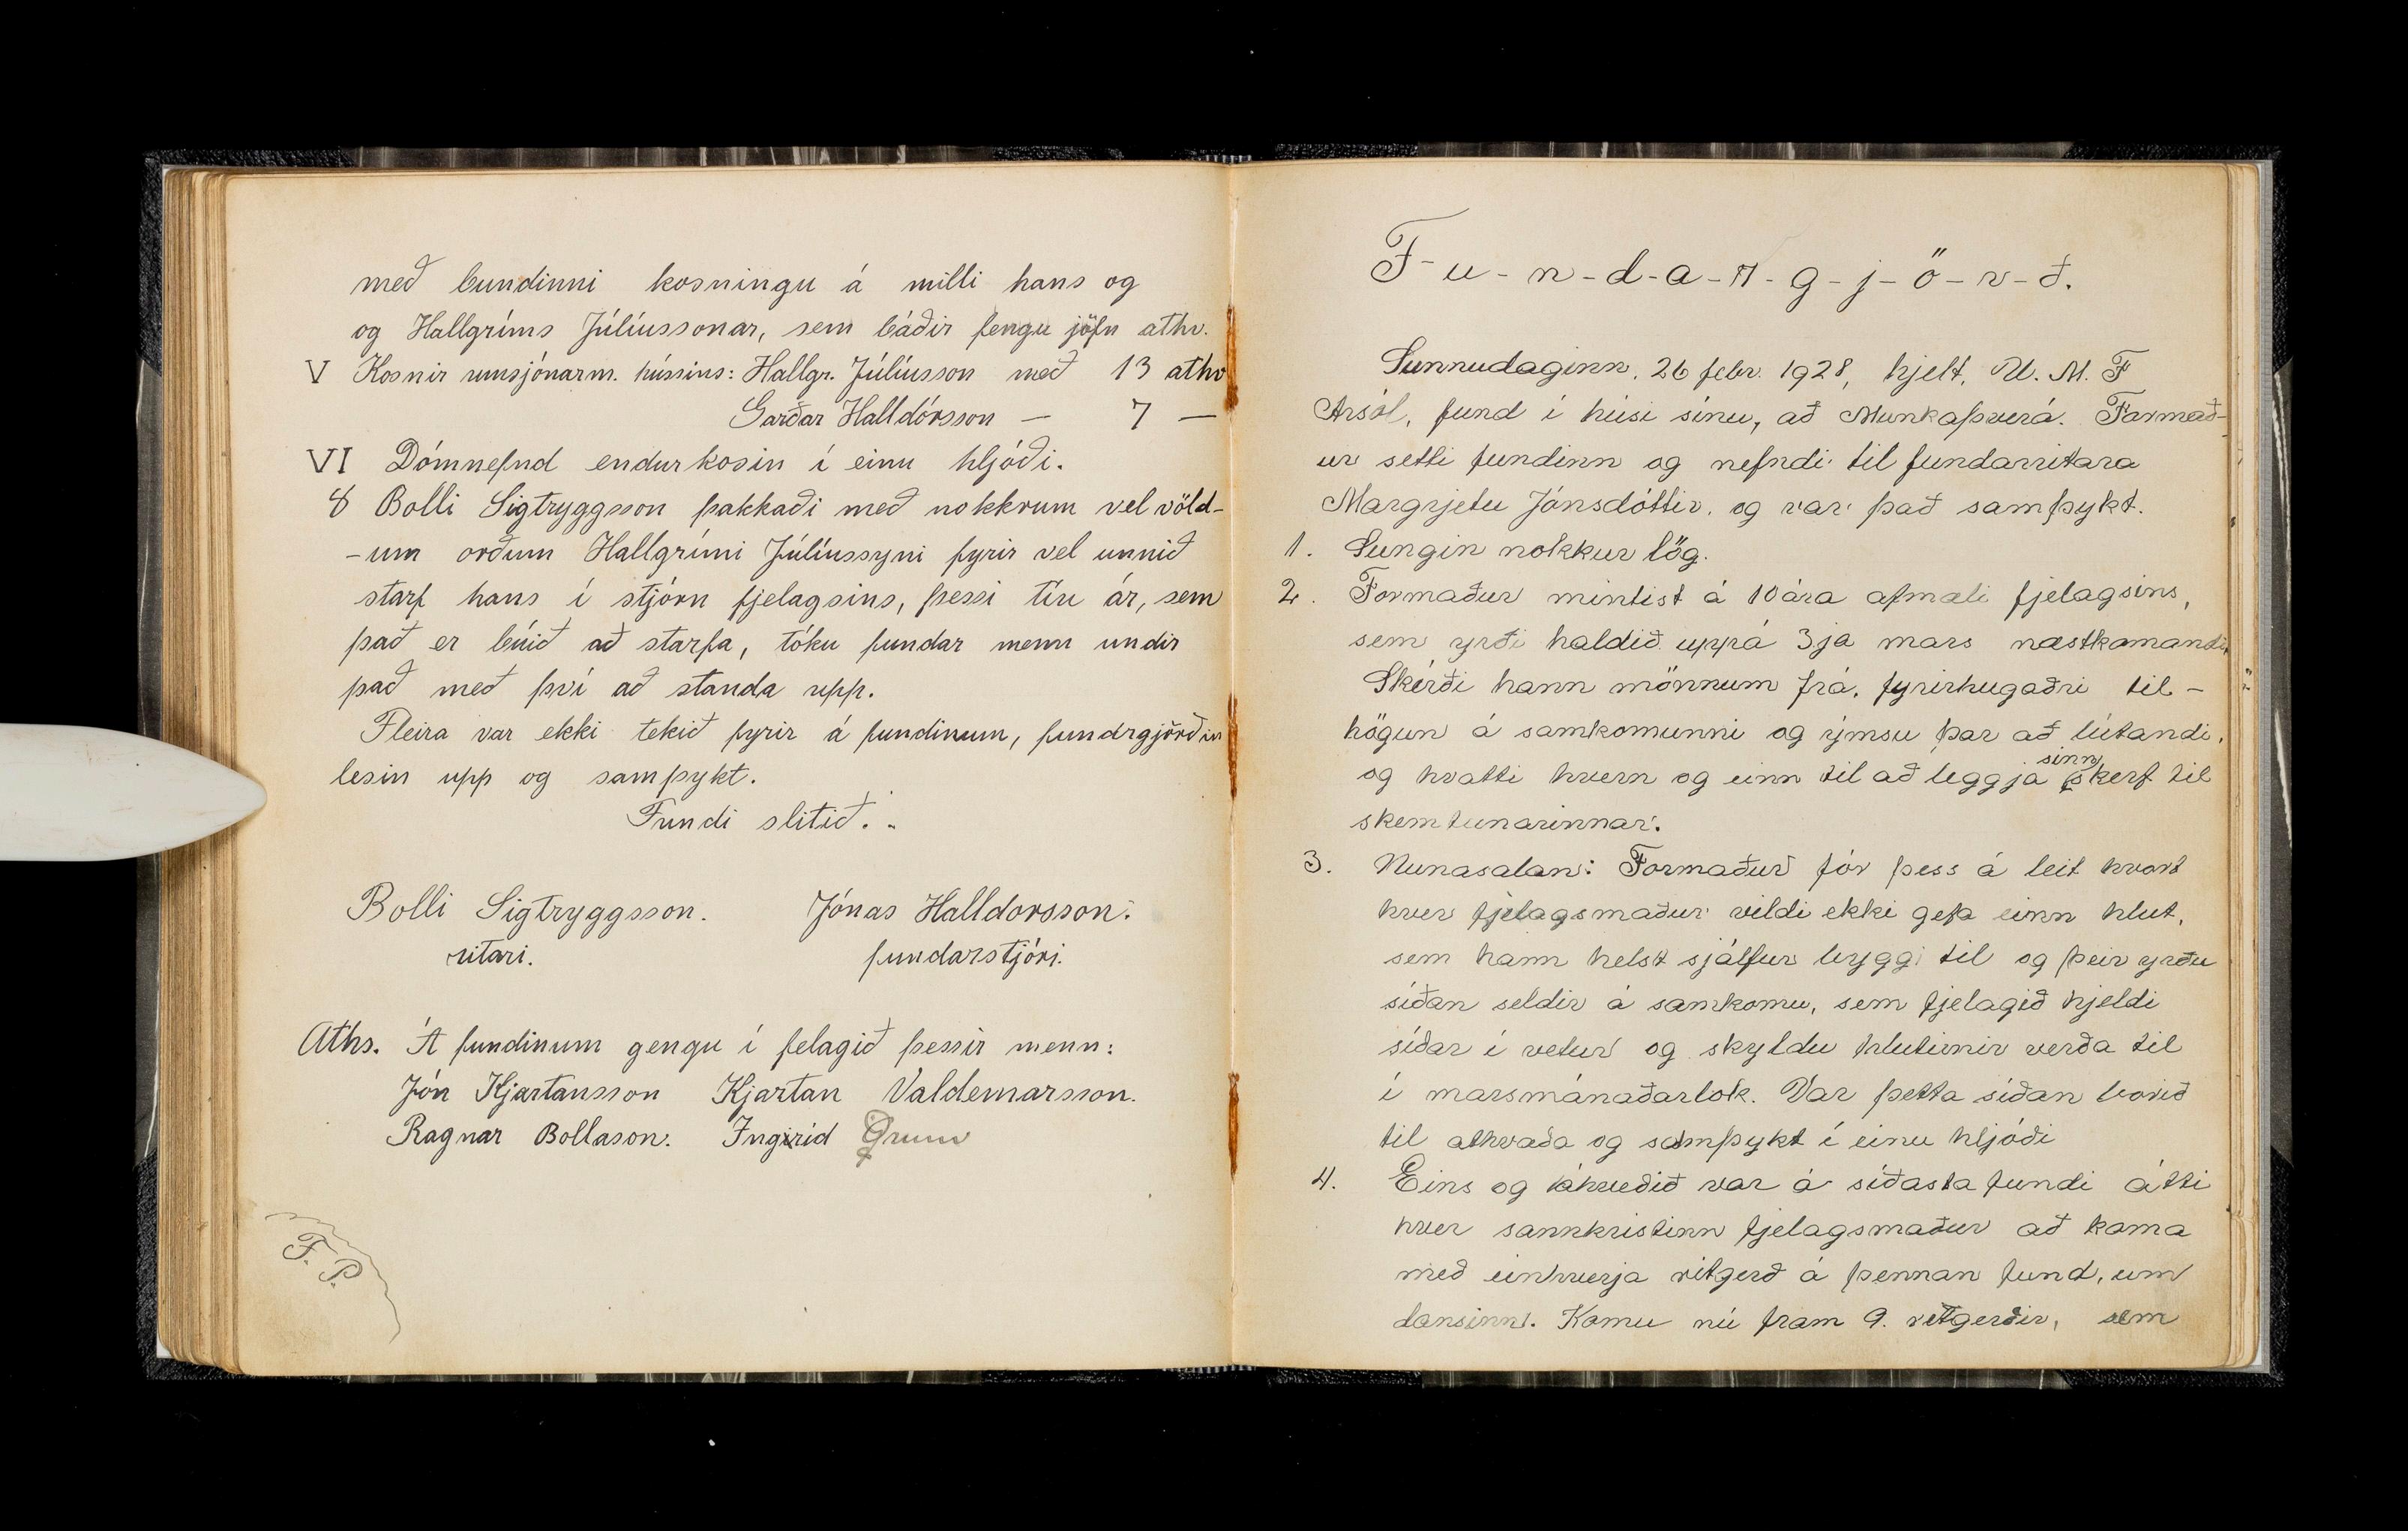 með bundinni kosningu á milli hans og
og Hallgríms Júlíussonar, sem báðir fengu jöfn athv.
V Kosnir umsjónarm. hússins: Hallgr. Júlíusson með 13 athv
Garðar Halldórsson — 7 —
VI Dómnefnd endurkosin í einu hljóði.
8 Bolli Sigtryggsson þakkaði með nokkrum vel völd-
-um orðum Hallgrími Júlíussyni fyrir vel unnið
starf hans í stjórn fjelagsins, þessi tíu ár, sem
það er búið að starfa, tóku fundar menn undir
það með því að standa upp.
Fleira var ekki tekið fyrir á fundinum, fundrgjörðin
lesin upp og samþykt.
Fundi slitið.
Bolli Sigtryggsson. Jónas Halldorsson.
ritari. fundarstjóri.
Aths. Á fundinum gengu í felagið þessir menn:
Jón Kjartansson Kjartan Valdemarsson.
Ragnar Bollason. Ingirid
F. P.
F-u-n-d-a-r-g-j-ö-r-ð.
Sunnudaginn. 26 febr. 1928, hjelt, U. M. F
Ársól, fund í húsi sínu, að Munkaþverá. Formað-
ur setti fundinn og nefndi til fundarritara
Margrjetu Jónsdóttir. og var það samþykt.
1. Sungin nokkur lög.
2. Formaður mintist á 10 ára afmæli fjelagsins,
sem yrði haldið uppá 3ja mars næstkomandi.
Skírði hann mönnum frá, fyrirhugaðri til-
högun á samkomunni og ýmsu þar að lútandi.
og hvatti hvern og einn til að leggja sinn skerf til
skemtunarinnar.
3. Nunasalan: Formaður fór þess á leit hvort
hver fjelagsmaður vildi ekki gefa einn hlut,
sem hann helst sjálfur byggi til og þeir yrðu
síðan seldir á samkomu, sem fjelagið hjeldi
síðar í vetur og skyldu hlutirnir verða til
í marsmánaðarlok. Var þetta síðan borið
til athvaða og samþykt í einu hljóði
4. Eins og ákveðið var á síðasta fundi átti
hver sannkristinn fjelagsmaður að koma
með einhverja ritgerð á þennan fund, um
dansinn. Komu nú fram 9. ritgerðir, sem